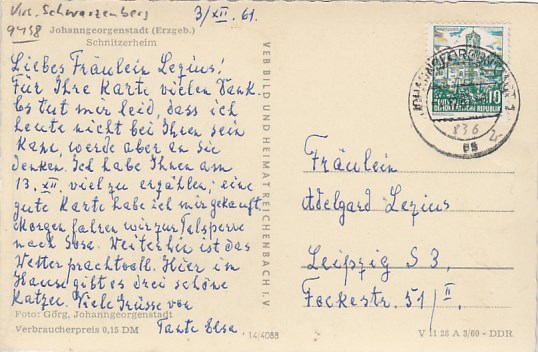 Krs. Schwarzenberg
9438
3/XII. 61.
Johanngeorgenstadt (Erzgeb.)
Schnitzerheim
Liebes Fräulein Lezius!
Für Ihre Karte vielen Dank.
Es tut mir leid, dass ich
heute nicht bei Ihnen sein
kann, werde aber an Sie
denken. Ich habe Ihnen am
13. XII. viel zu erzählen; eine
gute Karte habe ich mir gekauft.
Morgen fahren wir zur Talsperre
nach Sosa. Weiterhin ist das
Wetter prachtvoll. Hier im
Hause gibt es drei schöne
Katzen. Viele Grüsse von
Tante Elsa
Foto: Görg, Johanngeorgenstadt
Verbraucherpreis 0,15 DM
14/4088
VEB BILD UND HEIMAT REICHENBACH I. V.
10
DEUTSCHE
DEMOKRATISCHE REPUBLIK
JOHANNGEORGENSTADT 1
Fräulein
Adelgard Lezius
Leipzig S 3,
Fockestr. 51/II.
V 11 28 A 3/60 - DDR